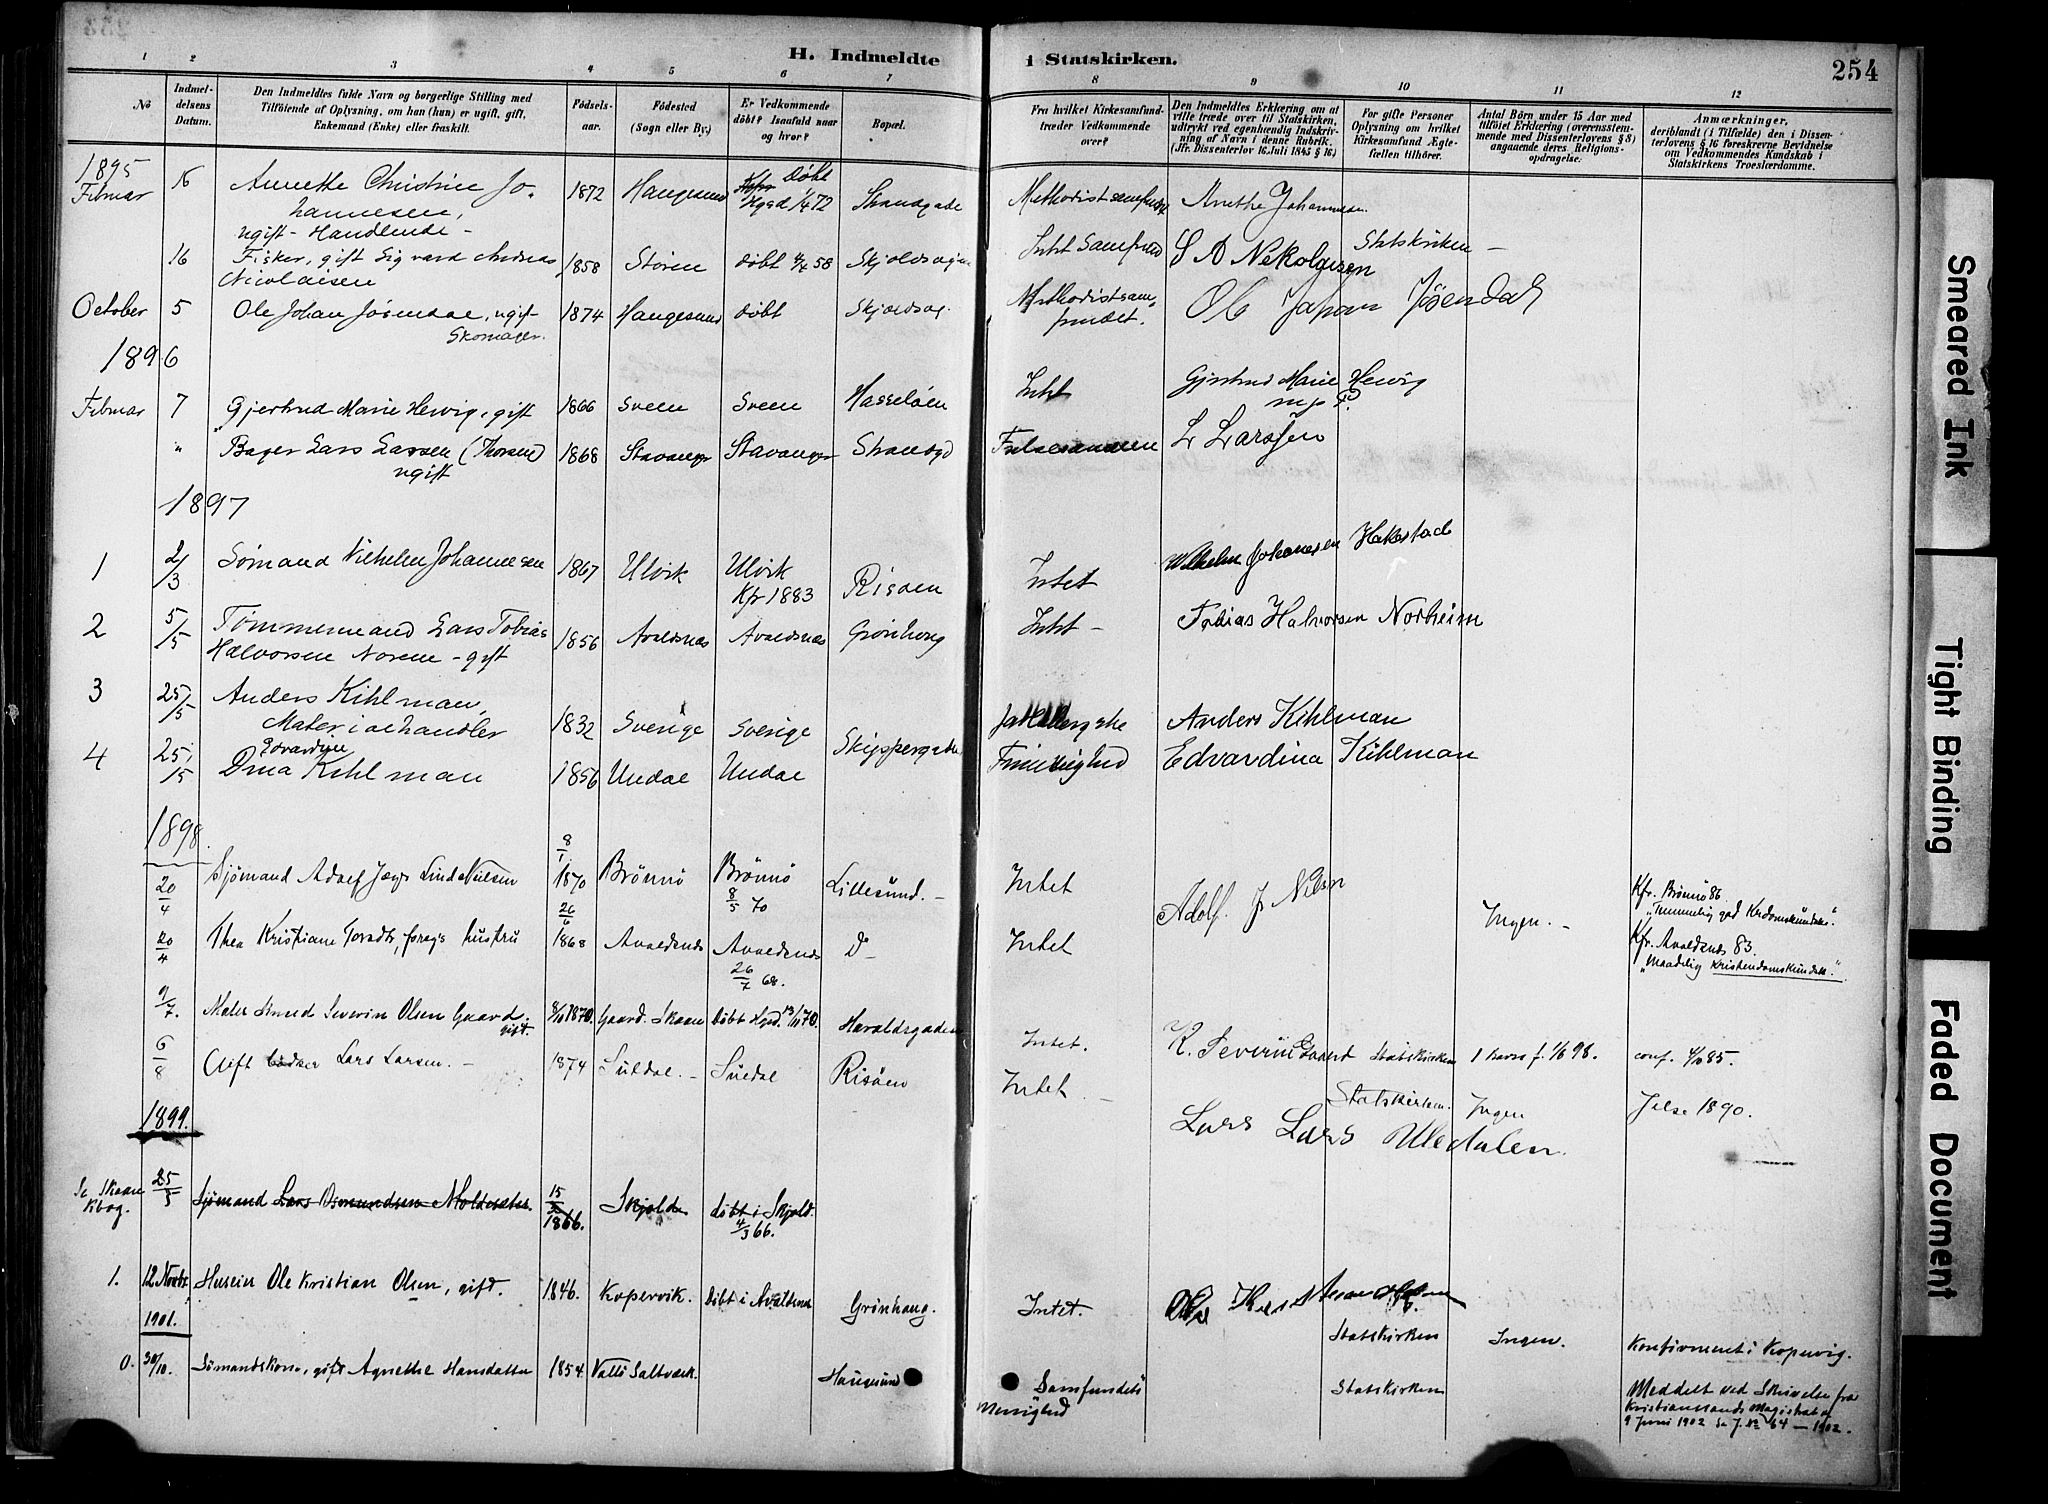 H. Indmeldte i Statskirken. 254
1 2 3 4 5 6 7 8 9 10 11 12
No
Indmel-
delsens
Datum.
Den Indmeldtes fulde Navn og borgerlige Stilling med
Tilföiende af Oplysning, om han (hun) er ugift, gift,
Enkemand (Enke) eller fraskilt.
Födsels-
aar.
Födested
(Sogn eller By.)
Er Vedkommende
döbt? Isaafald naar
og hvor?
Bopæl.
Fra hvilket Kirkesamfund
træder Vedkommende
over?
Den Indmeldtes Erklæring om at
ville træde over til Statskirken,
udtrykt ved egenhændig Indskriv-
ning af Navn i denne Rubrik.
(Jfr. Dissenterlov 16 Juli 1845 § 16)
For gifte Personer
Oplysning om hvilket
Kirkesamfund Ægte-
fællen tilhörer.
Antal Börn under 15 Aar med
tilföiet Erklæring (overensstem-
mende med Dissenterlovens § 8)
angaaende deres Religions-
opdragelse.
Anmærkninger,
deriblandt (i Tilfælde) den i Dissen-
terlovens § 16 foreskrevne Bevidnelse
om Vedkommendes Kundskab i
Statskirkens Troeslærdomme.
1895
Februar 16 Annette Christine Jo- 1872 Haugesund Döbt Strandgade Methodistsamfund Anethe Johannesen
hannesen, Hgsd 1/4 72
ugift - Handlende -
16 Fisker, gift Sigvard Andreas 1858 Stören döbt 4/4 58 Skjoldsagen Intet Samfund S A Nekolaisen Statskirken -
Nicolaisen
October 5 Ole Johan Jösendal, ugift 1874 Haugesund döbt Skjoldsag. Methodistsam- Ole Johan Jösendal
Skomager. fundet.
1896
Februar 7 Gjertrud Marie Hervig, gift 1866 Sveen Sveen Hasselöen Intet Gjertrud Marie Hervig
m p P.
" Bager Lars Larsen (Thorsen) 1868 Stavanger Stavanger Strandgd Frelsesarmeen L Larssen
ugift
1897
1 2/3 Sömand Vilhelm Johannesen 1867 Ulvik Ulvik Risöen Intet Wilhelm Johanesen Hakestad
Kfr 1883
2 5/5 Tömmermand Lars Tobias 1856 Avaldsnæs Avaldsnæs Grönhoug Intet - Tobias Halvorsen Norheim
Halvorsen Norem - gift
3 25/5 Anders Kihlman, 1832 Sverige Sverige Anders Kihlman
Materialhandler
4 25/5 Edvardine 1856 Undal Undal Skippergaden Frimenighed Edvardina Kihlman
Dina Kihlman
1898.
20/4 Sjömand Adolf Linde Nielsen 8/1 1870 Brönnö Brönnö 8/5 70 Lillesund. - Intet Adolf J Nilsen Ingen. - Kfr. Brönnö 86.
"Temmelig god Krdomskundsk."
20/4 Thea Kristiane Toradtr, foreg's hustru 26/6 1868 Avaldsnes Avaldsnes 26/7 68. D- Intet Kfr. Avaldsnes 83.
"Maadelig Kristendomskundsk."
9/7. Maler Knud Severin Olsen Gaard. gift. 8/10 1870. Gaard. Skaare Döbt Hgsd. 13/11 70. Haraldsgaden Intet. K. Severin Gaard Statskirken 1 barn f. 1/6 98. conf. 4/10 85.
6/8 Gift bödker Lars Larsen. - 1874 Suldal. - Suldal Risöen Intet - Statskirken. Ingen Jelse 1890.
Lars Lars Uledalen.
1899.
Se Skaare Kbog. 25/5 Sjömand Lars Osmundsen Moldesæter. 15/2 1866. Skjold döbt i Skjold. 4/3 66.
1. 12 Novbr. Huseier Ole Kristian Olsen, gift. 1846. Kopervik. Döbt i Avaldsnes Grönhaug. Intet. Statskirken Ingen. Konfirmeret i Kopervig.
1901.
0. 30/10. Sömandskone, gift Agnethe Hansdatter 1854. Vallö Saltværk. Haugesund "Samfundets" Statskirken Meddelt ved Skrivelse fra
Menighed Kristianssands Magistrat af
9 Juni 1902 se J. No 64 - 1902.
Smeared Ink
Tight Binding
Faded Document